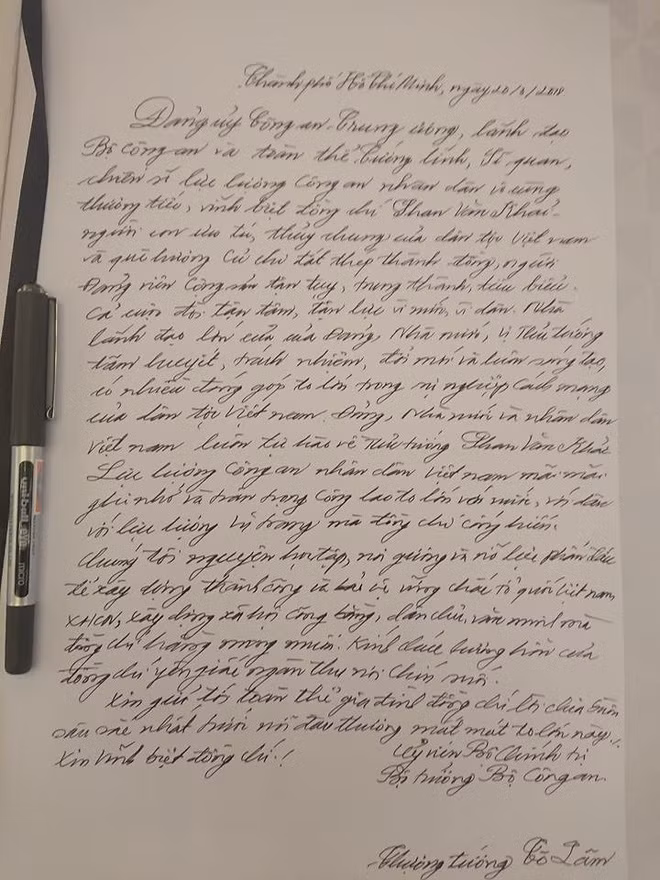 Thành phố Hồ Chí Minh, ngày 20/3/2018
Đảng ủy Công an Trung ương, lãnh đạo
Bộ Công an và toàn thể tướng lĩnh, Sĩ quan,
chiến sĩ lực lượng Công an nhân dân vô cùng
thương tiếc, vĩnh biệt đồng chí Phan Văn Khải -
người con ưu tú, thủy chung của dân tộc Việt nam
và quê hương Củ chi đất thép thành đồng, người
Đảng viên Cộng sản tận tụy, trung thành, tiêu biểu.
Cả cuộc đời tận tâm, tận lực vì nước, vì dân. Nhà
lãnh đạo lớn của của Đảng, Nhà nước, vị Thủ tướng
tâm huyết, trách nhiệm, đổi mới và luôn sáng tạo,
có nhiều đóng góp to lớn trong sự nghiệp Cách mạng
của dân tộc Việt nam. Đảng, Nhà nước và nhân dân
Việt nam luôn tự hào về Thủ tướng Phan Văn Khải.
Lực lượng Công an nhân dân Việt nam mãi mãi
ghi nhớ và trân trọng Công lao to lớn với nước, với dân
với lực lượng vũ trang mà đồng chí cống hiến.
Chúng tôi nguyện học tập, noi gương và nỗ lực phấn đấu
để xây dựng thành công và bảo vệ vững chắc tổ quốc Việt nam
XHCN, xây dựng xã hội công bằng, dân chủ, văn minh mà
đồng chí hằng mong muốn. Kính chúc hương hồn của
đồng chí yên giấc ngàn thu nơi chín suối.
Xin gửi tới toàn thể gia đình đồng chí lời chia buồn
sâu sắc nhất trước nỗi đau thương mất mát to lớn này!
Xin vĩnh biệt đồng chí!
Ủy viên Bộ Chính trị
Bộ trưởng Bộ Công an
Thượng tướng Tô Lâm
uni-ball eye
micro